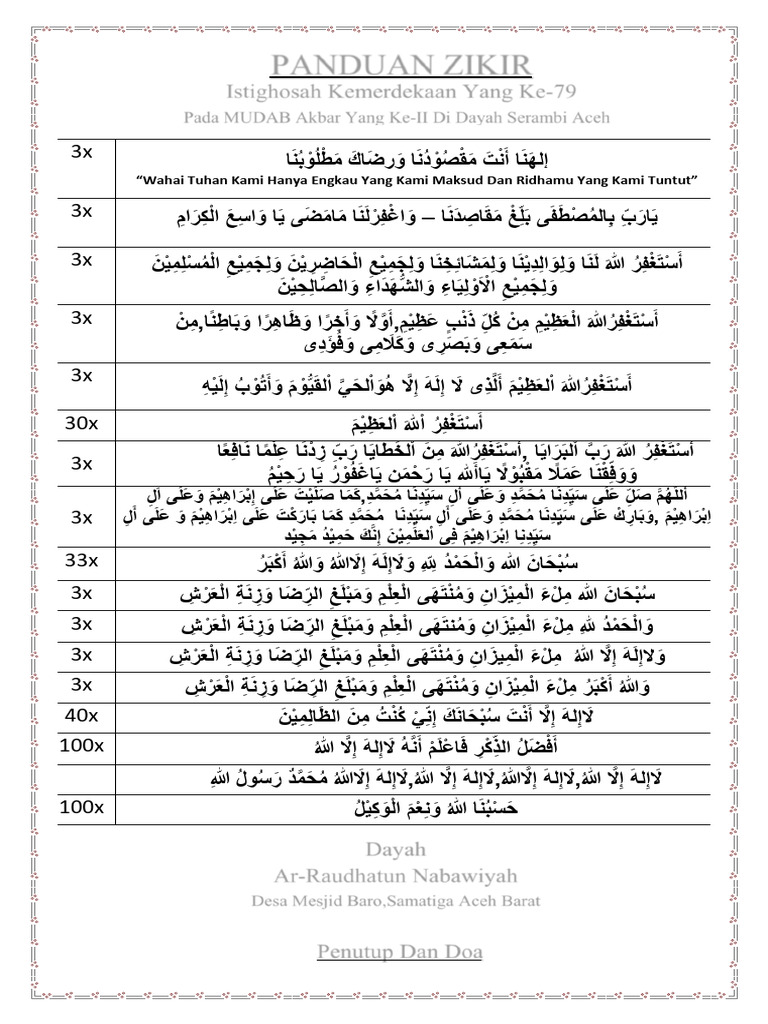 PANDUAN ZIKIR
Istighosah Kemerdekaan Yang Ke-79
Pada MUDAB Akbar Yang Ke-II Di Dayah Serambi Aceh
3x
إِلهَنَا أَنْتَ مَقْصُوْدُنَا وَرِضَاكَ مَطْلُوْبُنَا
“Wahai Tuhan Kami Hanya Engkau Yang Kami Maksud Dan Ridhamu Yang Kami Tuntut”
3x
يَارَبِّ بِالمُصْطَفَى بَلِّغْ مَقَاصِدَنَا – وَاغْفِرْلَنَا مَامَضَى يَا وَاسِعَ الْكِرَامِ
3x
أَسْتَغْفِرُ اللهَ لَنَا وَلِوَالِدِيْنَا وَلِمَشَائِخِنَا وَلِجَمِيْعِ الْحَاضِرِيْنَ وَلِجَمِيْعِ الْمُسْلِمِيْنَ
وَلِجَمِيْعِ الْاَوْلِيَاءِ وَالشُّهَدَاءِ وَالصَّالِحِيْنَ
3x
أَسْتَغْفِرُاللهَ الْعَظِيْمِ مِنْ كُلِّ ذَنْبٍ عَظِيْمٍ,أَوَّلًا وَأَخِرًا وَظَاهِرًا وَبَاطِنًا,مِنْ
سَمَعِى وَبَصَرِى وَكَلَامِى وَفُؤَدِى
3x
أَسْتَغْفِرُاللهَ اْلعَظِيْمَ أَلَّذِى لَا إِلَهَ إِلَّا هُوَاْلحَيَّ اْلقَيُّوْمَ وَأَتُوْبُ إِلَيْهِ
30x
أَسْتَغْفِرُ اْللهَ اْلعَظِيْمَ
3x
أَسْتَغْفِرُ اللهَ رَبَّ اَلْبَرَايَا ,أَسْتَغْفِرُاللهَ مِنَ اْلخَطَايَا رَبِّ زِدْنَا عِلْمًا نَافِعًا
وَوَفِّقْنَا عَمَلًا مَقْبُوْلًا يَاأَلله يَا رَحْمَن يَاغَفُوْرُ يَا رَحِيْمُ
3x
أَللَّهُمَّ صَلِّ عَلَى سَيِّدِنَا مُحَمَّدٍ وَعَلَى اَلِ سَيِّدِنَا مُحَمَّدٍ,كَمَا صَلَّيْتَ عَلَى إِبْرَاهِيْمَ وَعَلَى اَلِ
اِبْرَاهِيْمَ ,وَبَارِكْ عَلَى سَيِّدِنَا مُحَمَّدٍ وَعَلَى أَلِ سَيِّدِنَا مُحَمَّدٍ كَمَا بَارَكْتَ عَلَى اِبْرَاهِيْمَ وَ عَلَى أَلِ
سَيِّدِنِا اِبرَاهِيْمَ فِى اْلعَلَمِيْنَ إِنَّكَ حَمِيْدُ مَجِيْد
33x
سُبْحَانَ الله وَالْحَمْدُ لِلّهِ وَلَاإِلَهَ إِلَااللهُ وَاللهُ أَكْبَرُ
3x
سُبْحَانَ اللهِ مِلْءَ الْمِيْزَانِ وَمُنْتَهَى الْعِلْمِ وَمَبْلَغِ الرِّضَا وَزِنَةِ الْعَرْشِ
3x
وَالْحَمْدُ للهِ مِلْءَ الْمِيْزَانِ وَمُنتهَى الْعِلْمِ وَمَبْلَغِ الرِّضَا وَزِنَةِ الْعَرْشِ
3x
وَلَاإِلَهَ إِلَّا اللهُ مِلْءَ الْمِيْزَانِ وَمُنْتَهَى الْعِلْمِ وَمَبْلَغِ الرِّضَا وَزِنَةِ الْعَرْشِ
3x
وَاللهُ أَكْبَرُ مِلْءَ الْمِيْزَانِ وَمُنْتَهَى الْعِلْمِ وَمَبْلَغِ الرِّضَا وَزِنَةِ الْعَرْشِ
40x
لَاإِلهَ إِلَّا أَنْتَ سُبْحَانَكَ إِنِّيْ كُنْتُ مِنَ الظَّالِمِيْنَ
100x
أَفْضَلُ الذِّكْرِ فَاعْلَمْ أَنَّهُ لَاإِلهَ إِلَّا اللهُ
لَاإِلهَ إِلَّا اللهُ,لَاإِلهَ إِلَّااللهُ,لَاإِلهَ إِلَّا اللهُ,لَاإِلهَ إِلَااللهُ مُحَمَّدٌ رَسُولُ اللهِ
100x
حَسْبُنَا اللهُ وَنِعْمَ الْوَكِيْلُ
Dayah
Ar-Raudhatun Nabawiyah
Desa Mesjid Baro,Samatiga Aceh Barat
Penutup Dan Doa